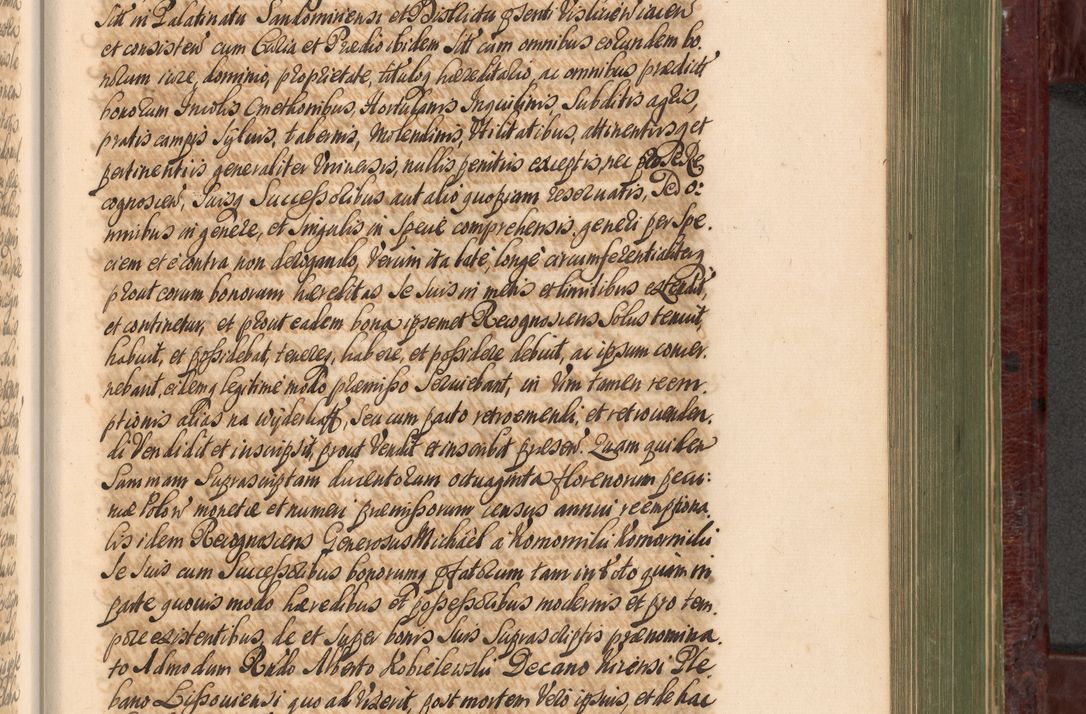 Sitt in Palatinatu Sandomiriensi et Districtu pnsenti Visliciensi iacen
et consisten cum Curia et Prædio ibidem Sitt cum omnibus eorundem bo.
norum iure, dominio, proprietate, titulog hæreditario, ac omnibus prædict
bonorum Incolis Cmethonibus, Hortulanis Inquilinis, Subditis agris,
pratis campis Sylvis, tabernis, Molendinis, Utilitatibus, attinentiisq et
pertinentiis generaliter Vniversis, nullis penitus exceptis, nec pro Se Re
cognoscen, Suisq Successoribus aut alio quopiam reservatis, Sed o:
mnibus in genere, et Singulis in Specie comprehensis, generi per Spe.
ciem et è contra non derogando, Verum ita latè, longè circumferentialiterq
prout eorum bonorum hæreditas Se Suis in metis et limitibus extendit,
et continetur, et prout eadem bona ipsemet Recognoscens Solus tenuit,
habuit, et possidebat, tenereq, habere, et possidere debuit, ac ipsum concer.
nebant, eidemq legitimè modo præmisso Serviebant, in Vim tamen reem
ptionis alias na wyderkaff, Seu cum pacto retroemendi, et retrovenden
di Vendidit et inscripsit, prout Vendit et inscribit præsen. Quam quidem
Summam Suprascriptam ducentorum octuaginta florenorum pecu:
niæ Polon monetæ et numeri præmissorum census annui reemptiona
lis idem Recognoscens Generosus Michael à Komorniki Komornicki
Se Suis cum Successoribus bonorumq pfatorum tam in toto quàm in
parte quovis modo hæredibus et possessoribus modernis et pro tem
pore existentibus, de et Super bonis Suis Suprascriptis prænomina
to Admodum Rndo Alberto Kobielewski Decano Kirensi Ple
bano Lissoviensi quo ad Vixerit, post mortem Verò ipsius, et de hac